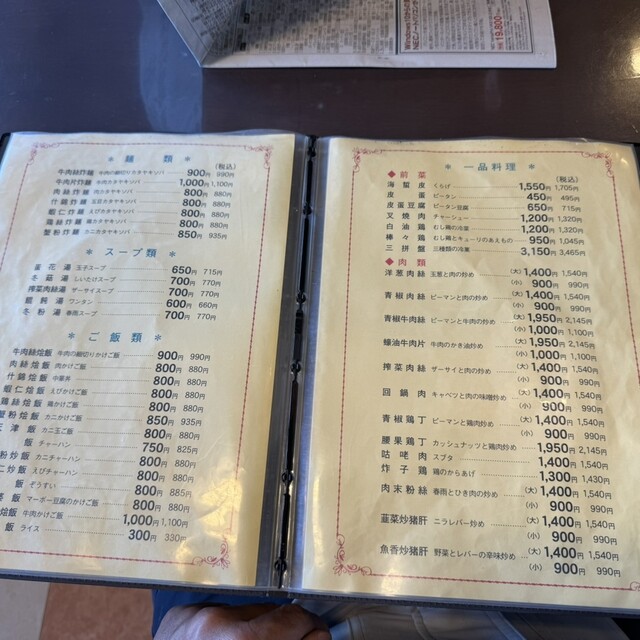 19,800
＊ 麺 類 ＊
(税込)
牛肉絲炸麺 牛肉の細切りカタヤキソバ 900円 990円
牛肉片炸麺 牛肉カタヤキソバ 1,000円 1,100円
肉絲炸麺 肉カタヤキソバ 800円 880円
什錦炸麺 五目カタヤキソバ 800円 880円
蝦仁炸麺 えびカタヤキソバ 800円 880円
鶏絲炸麺 鶏カタヤキソバ 800円 880円
蟹粉炸麺 カニカタヤキソバ 850円 935円
＊ スープ類 ＊
蛋花湯 玉子スープ 650円 715円
冬菇湯 しいたけスープ 700円 770円
搾菜肉絲湯 ザーサイスープ 700円 770円
餛飩湯 ワンタン 600円 660円
冬粉湯 春雨スープ 700円 770円
＊ ご飯類 ＊
牛肉絲燴飯 牛肉の細切りかけご飯 900円 990円
肉絲燴飯 肉かけご飯 800円 880円
什錦燴飯 中華丼 800円 880円
蝦仁燴飯 えびかけご飯 800円 880円
鶏絲燴飯 鶏かけご飯 800円 880円
蟹粉燴飯 カニかけご飯 850円 935円
天津飯 カニ玉ご飯 800円 880円
飯 チャーハン 750円 825円
粉炒飯 カニチャーハン 800円 880円
仁炒飯 えびチャーハン 800円 880円
飯 ぞうすい 800円 880円
飯 マーボー豆腐のかけご飯 800円 880円
燴飯 牛肉かけご飯 1,000円 1,100円
飯 ライス 300円 330円
＊ 一品料理 ＊
(税込)
◆前菜
海蜇皮 くらげ 1,550円 1,705円
皮蛋 ピータン 450円 495円
皮蛋豆腐 ピータン豆腐 650円 715円
叉焼肉 チャーシュー 1,200円 1,320円
白油鶏 むし鶏の冷菜 1,200円 1,320円
棒々鶏 むし鶏とキューリのあえもの 950円 1,045円
三拼盤 三種類の冷菜 3,150円 3,465円
◆肉類
洋葱肉絲 玉葱と肉の炒め (大) 1,400円 1,540円
(小) 900円 990円
青椒肉絲 ピーマンと肉の炒め (大) 1,400円 1,540円
(小) 900円 990円
青椒牛肉絲 ピーマンと牛肉の炒め (大) 1,950円 2,145円
(小) 1,000円 1,100円
蠔油牛肉片 牛肉のかき油炒め (大) 1,950円 2,145円
(小) 1,000円 1,100円
搾菜肉絲 ザーサイと肉の炒め (大) 1,400円 1,540円
(小) 900円 990円
回鍋肉 キャベツと肉の味噌炒め (大) 1,400円 1,540円
(小) 900円 990円
青椒鶏丁 ピーマンと鶏肉炒め (大) 1,400円 1,540円
(小) 900円 990円
腰果鶏丁 カッシュナッツと鶏肉炒め 1,950円 2,145円
咕咾肉 スブタ 1,400円 1,540円
炸子鶏 鶏のからあげ 1,300円 1,430円
肉末粉絲 春雨とひき肉の炒め (大) 1,400円 1,540円
(小) 900円 990円
韮菜炒猪肝 ニラレバー炒め (大) 1,400円 1,540円
(小) 900円 990円
魚香炒猪肝 野菜とレバーの辛味炒め (大) 1,400円 1,540円
(小) 900円 990円